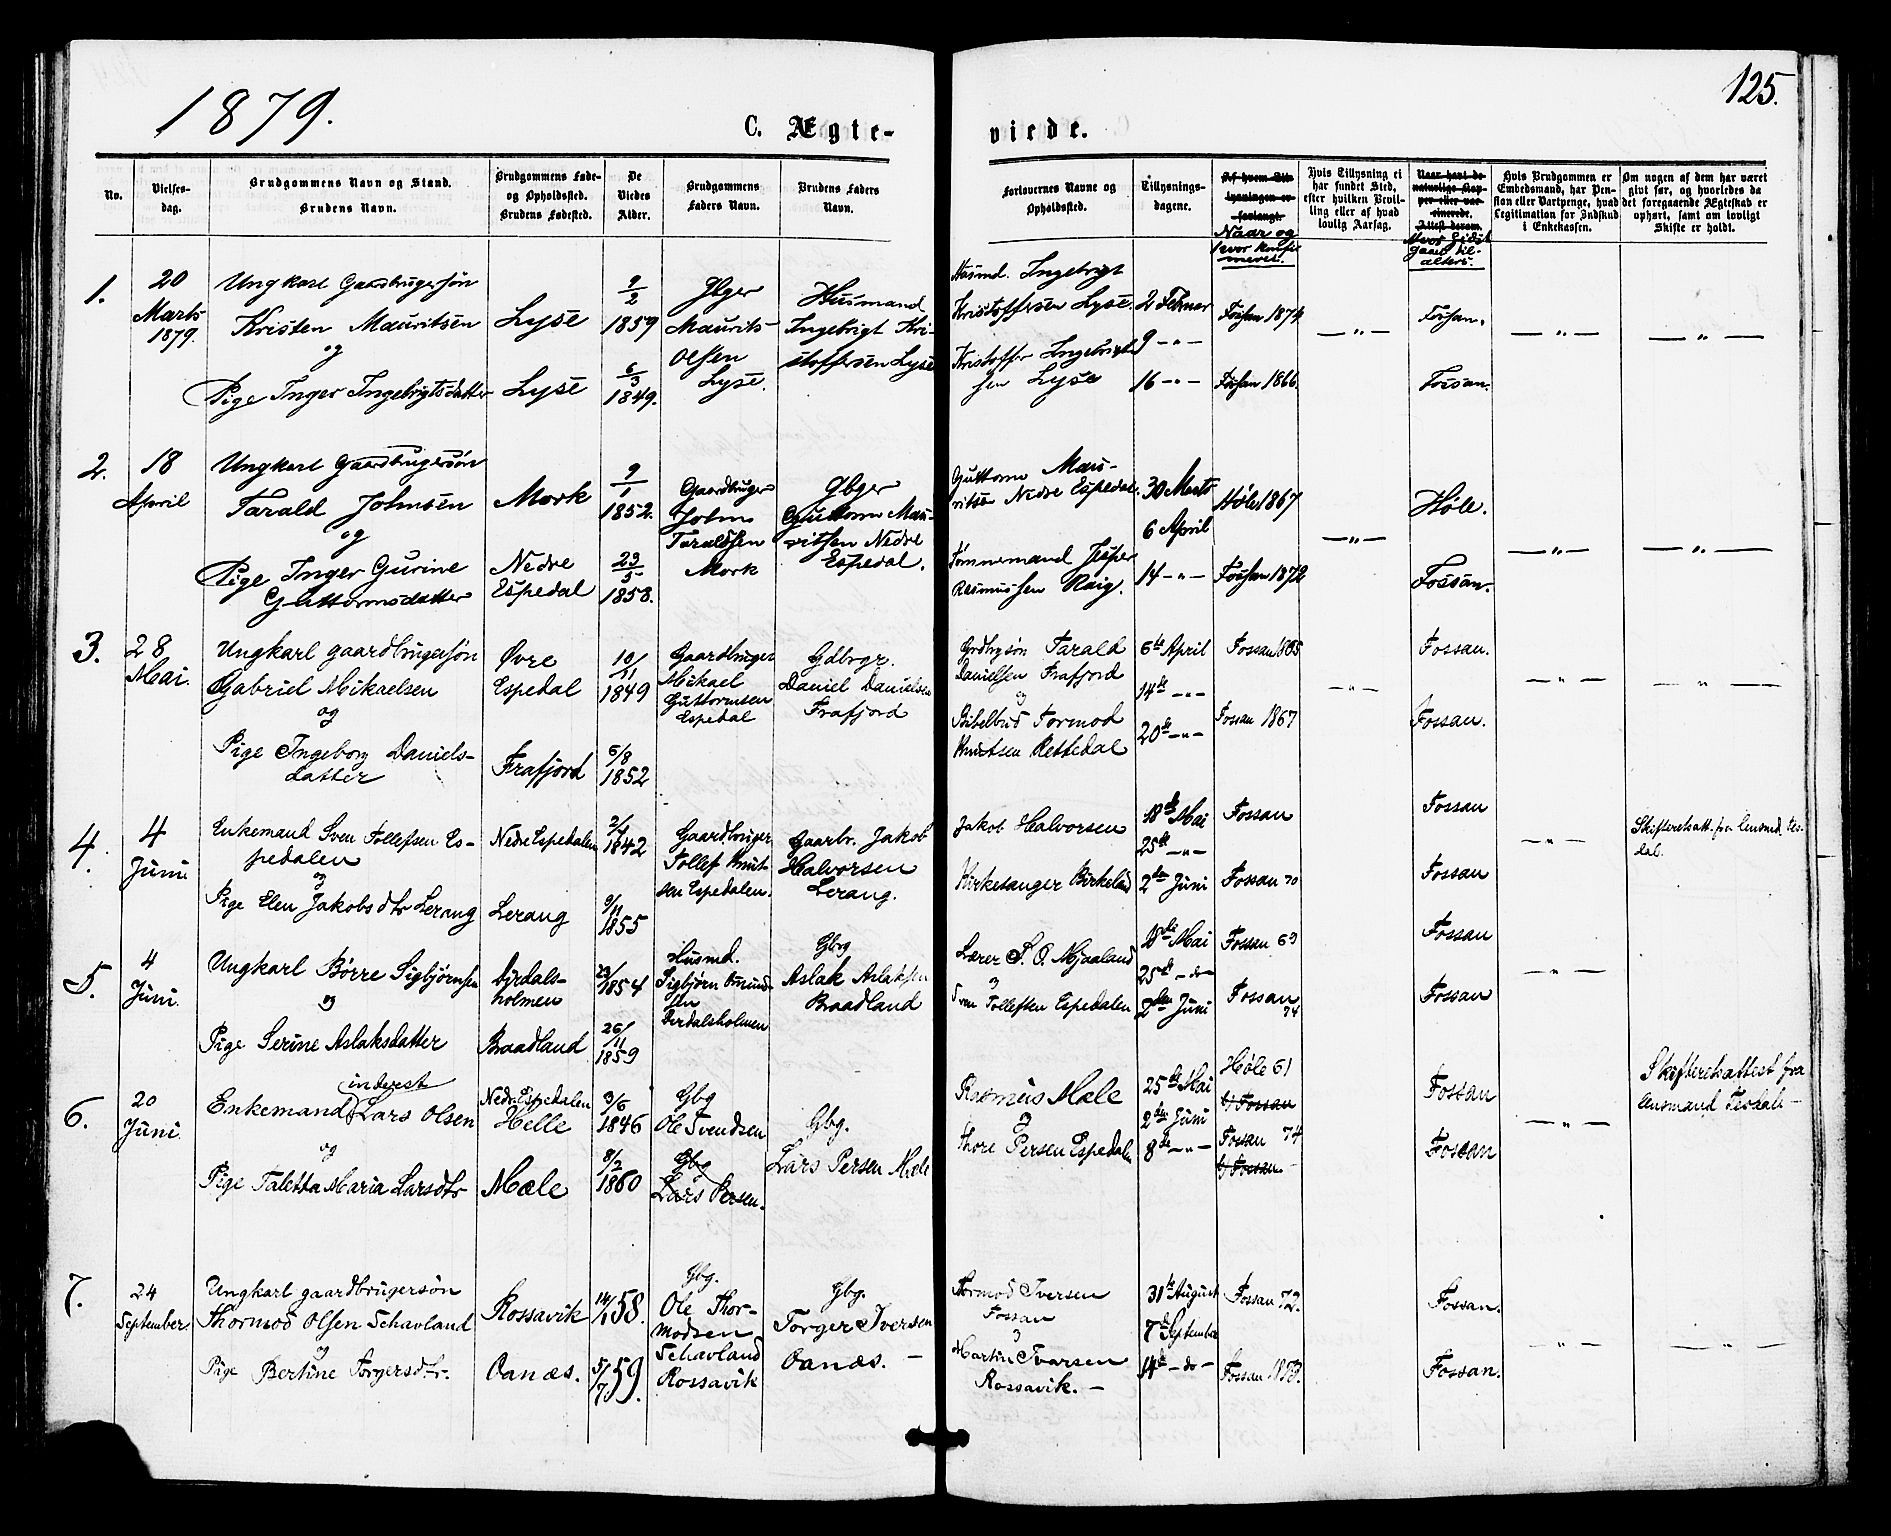 1879.
125.
C. Ægte-
viede.
No.
Vielses-
dag.
Brudgommens Navn og Stand.
Brudens Navn.
Brudgommens Føde-
og Opholdsted.
Brudens Fødested.
De
Viedes
Alder.
Brudgommens
Faders Navn.
Brudens Faders
Navn.
Forlovernes Navne og
Opholdsted.
Tillysnings-
dagene.
Af hvem Til-
lysningen er
forlangt.
Naar og
hvor konfir
meret.
Hvis Tillysning ei
har fundet Sted,
efter hvilken Bevil-
ling eller af hvad
lovlig Aarsag.
Naar havt de
naturlige Kop-
per eller vac-
cinerede.
Attest derom.
Hvor sidst
gaaet til-
alters.
Hvis Brudgommen er
Embedsmand, har Pen-
sion eller Vartpenge, hvad
Legitimation for Indskud
i Enkekassen.
Om nogen af dem har været
givt før, og hvorledes da
det foregaaende Ægteskab er
ophørt, samt om lovligt
Skifte er holdt.
1.
20
Marts
1879.
Ungkarl Gaardbrugersøn
Kristen Mauritsen
og
Pige Inger Ingebrigtsdatter
Lyse
Lyse
9/2
1859
6/3
1849.
Gbger
Maurits
Olsen
Lyse.
Husmand
Ingebrigt Kri-
stoffersen Lyse
Husmd. Ingebrigt
Kristoffersen Lyse.
Kristoffer Ingebrigt
sen Lyse
2 Februar
9 - " -
16 - " -
Fossan 1874
Fossan 1866.
- " -
Fossan.
Fossan.
- " -
- " -
2.
18
April
Ungkarl Gaardbrugersøn
Tarald Johnsen
og
Pige Inger Gurine
Guttormsdatter
Mork
Nedre
Espedal
9/1
1852.
23/5
1858.
Gaardbruger
John
Taraldsen
Mork
Gbger
Guttorm Mau-
ritsen Nedre
Espedal.
Guttorm Mau-
ritsen Nedre Espedal.
Tømmermand Jesper
Rasmussen Raig.
30 Marts
6 April
14 - " -
Høle 1867
Fossan 1872
- " -
Høle.
Fossan.
- " -
- " -
3.
28
Mai.
Ungkarl gaardbrugersøn
Gabriel Mikaelsen
og
Pige Ingeborg Daniels-
datter
Øvre
Espedal
Frafjord
10/11
1849
5/8
1852
Gaardbruger
Mikael
Guttormsen
Espedal
Gdbrgr.
Daniel Danielsen
Frafjord
Grdbrgsøn Tarald
Danielsen Frafjord
og
Bibelbud Tormod
Knutsen Rettedal
6te April
14de - " -
20de - " -
Fossan 1865
Fossan 1867
- " -
Fossan.
Fossan.
- " -
- " -
4.
4
Juni
Enkemand Sven Tollefsen Es-
pedalen
og
Pige Elen Jakobsdtr Lerang
Nedre Espedalen
Lerang
2/4
1842
9/11
1855
Gaardbruger
Tollef Knut-
sen Espedalen.
Gaarbr. Jakob
Halvorsen
Lerang.
Jakob Halvorsen
Kirkesanger Birkeland
18de Mai
25de - " -
2den Juni
Fossan
Fossan 70
Fossan
Fossan
- " -
Skifteretsatt. fra Lensmd. Tes-
dal.
5.
4
Juni.
Ungkarl Børre Sigbjørnsen
og
Pige Serine Aslaksdatter
Dirdals-
holmen
Braadland
23/
1854
26/11
1859
Husmd.
Sigbjørn Amund-
sen
Dirdalsholmen
Gbrg
Aslak Aslaksen
Braadland
Lærer S. O. Mjaaland
og
Sven Tollefsen Espedalen
18de Mai
25de - do -
2den Juni
Fossan 69
Fossan
74
Fossan
Fossan
- " -
6.
20
Juni.
inderst
Enkemand Lars Olsen
og
Pige Taletta Maria Larsdtr
Nedr. Espedalen
Helle
Mæle
3/6
1846
8/2
1860
Gbg
Ole Svendsen
Gbg
Lars Persen.
Gbg.
Lars Persen Mæle
Rasmus Mæle
og
Thore Persen Espedalen
25de Mai
2den Juni
8de - " -
Høle 61
b) Fossan
Fossan 74
b) Fossan.
Fossan
Fossan
- " -
Skifteretsattest fra
Lensmand Tesdal -
7.
24
September.
Ungkarl gaardbrugersøn
Thormod Olsen Schavland
og
Pige Bertine Torgersdtr.
Rossavik
Oanæs.
14/1 58.
5/7 59.
Gbg.
Ole Thor-
modsen
Schavland
Rossavik
Gbg.
Torger Iversen
Oanæs. -
Tormod Iversen
Fossan
og
Martin Ivarsen
Rossavik. -
31te August
7de September
14de - do -
Fossan 72.
Fossan 1873.
Fossan.
Fossan.
- " -
- " -